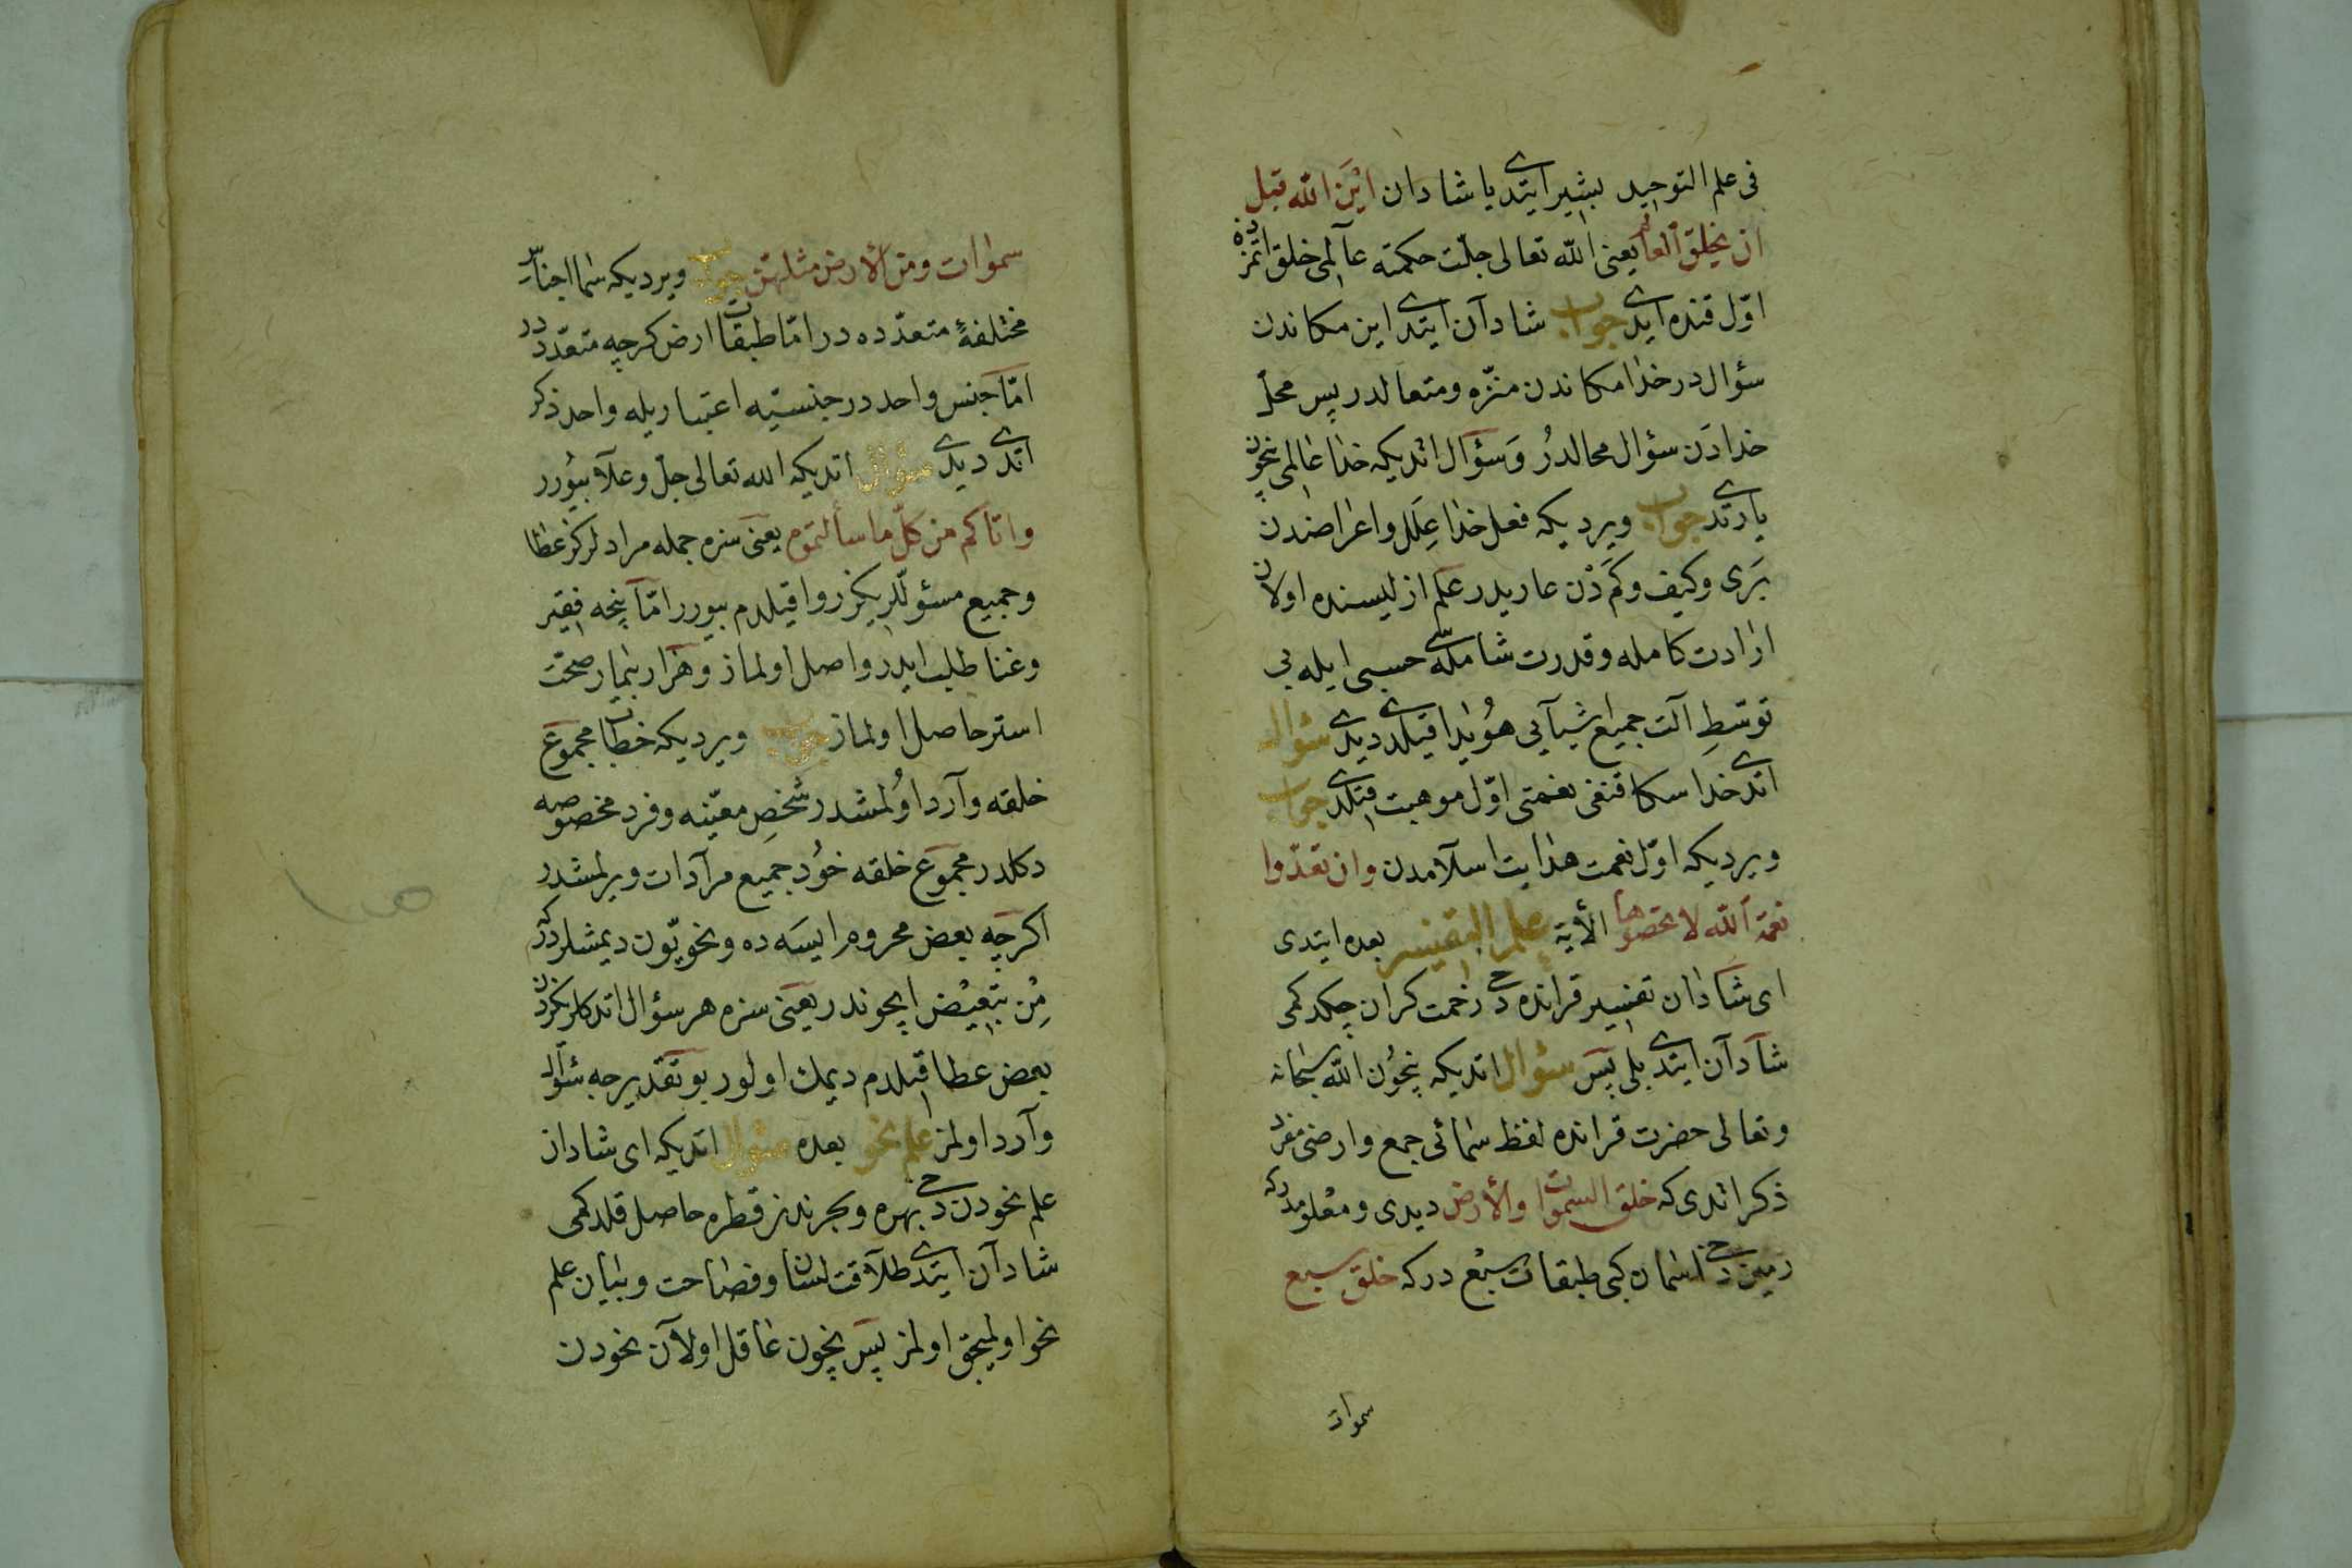 فى علم التوحيد بشير ايتدى يا شادان اين الله قبل
ان يخلق العالم يعنى الله تعالى جلّت حكمته عالمى خلق اتمزدن
اوّل قنده ايدى جواب شادان ايتدى اين مكاندن
سؤال در خدا مكاندن منزّه ومتعالدر پس محلّ
خدادن سؤال محالدر وسؤال اتديكه خدا عالمى نچون
يارتدى جواب ويرديكه فعل خدا علل واعراضدن
برى وكيف وكم دن عاريدر علم ازليسنده اولان
ارادت كامله وقدرت شامله سى حسبى ايله بى
توسّط آلت جميع اشيايى هويدا قيلدى ديدى سؤال
اتدى خدا سكا قنغى نعمتى اوّل موهبت قيلدى جواب
ويرديكه اوّل نعمت هدايت اسلامدن وان تعدّوا
نعمة الله لا تحصوها الأية علم التفسير بعده ايتدى
اى شادان تفسير قرانده دخى زحمت كران چكدكمى
شادان ايتدى بلى پس سؤال اتديكه نچون الله سبحانه
وتعالى حضرت قرانده لفظ سمائى جمع وارضى مفرد
ذكر اتدى كه خلق السموات والأرض ديدى ومعلومدركه
زمين دخى اسمان كبى طبقات سبع دركه خلق سبع
سموات
سموات ومن الأرض مثلهن جواب ويرديكه سما اجناس
مختلفهٔ متعدّده در امّا طبقات ارض كرچه متعدّددر
امّا جنس واحددر جنسيه اعتباريله واحد ذكر
اتدى ديدى سؤال اتديكه الله تعالى جلّ وعلا بيورر
واتاكم من كلّ ما سألتموه يعنى سزه جمله مرادلركز عطا
وجميع مسؤللريكز روا قيلدم بيورر امّا نچه فقير
وغنا طلب ايدر واصل اولماز وهزار بيمار صحّت
استر حاصل اولماز جواب ويرديكه خطاب مجموع
خلقه وارد اولمشدر شخص معيّنه وفرد مخصوصه
دكلدر مجموع خلقه خود جميع مرادات ويرلمشدر
اكرچه بعض محروم ايسه ده ونحويّون ديمشلردركه
من تبعيض ايچوندر يعنى سزه هر سؤال اتدكلريكزدن
بعض عطا قيلدم ديمك اولور بو تقديرجه سؤال
وارد اولمز علم نحو بعده سؤال اتديكه اى شادان
علم نحودن دخى بهره وبحرندن قطره حاصل قلدكمى
شادان ايتدى طلاقت لسان وفصاحت وبيان علم
نحو اوليجق اولمز پس نچون عاقل اولان نحودن